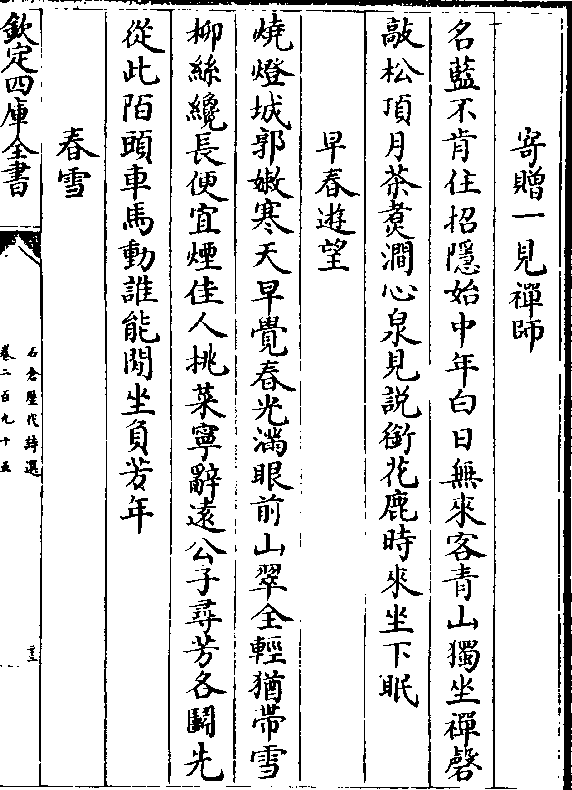 寄贈一見禪師
名藍不肯住招隱始中年白日無來客青山獨坐禪磬
敲松頂月茶煑澗心泉見説銜花鹿時來坐下眠
早春遊望
燒燈城郭嫩寒天早覺春光滿眼前山翠全輕猶帶雪
柳絲纔長便宜煙佳人挑菜寧辭遠公子尋芳各鬭先
從此陌頭車馬動誰能閒坐負芳年
春雪
欽定四庫全書
石倉歷代詩選
卷二百九十五